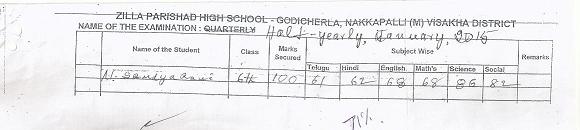 ZILLA PARISHAD HIGH SCHOOL - GODICHERLA, NAKKAPALLI (M) VISAKHA DISTRICT
NAME OF THE EXAMINATION : QUARTERLY Half-yearly, January, 2015
Name of the Student Class Marks Secured Subject Wise Remarks
Telugu Hindi English Math's Science Social
N. Sandya Rani 6th 100 61 62 68 68 86 82
71%